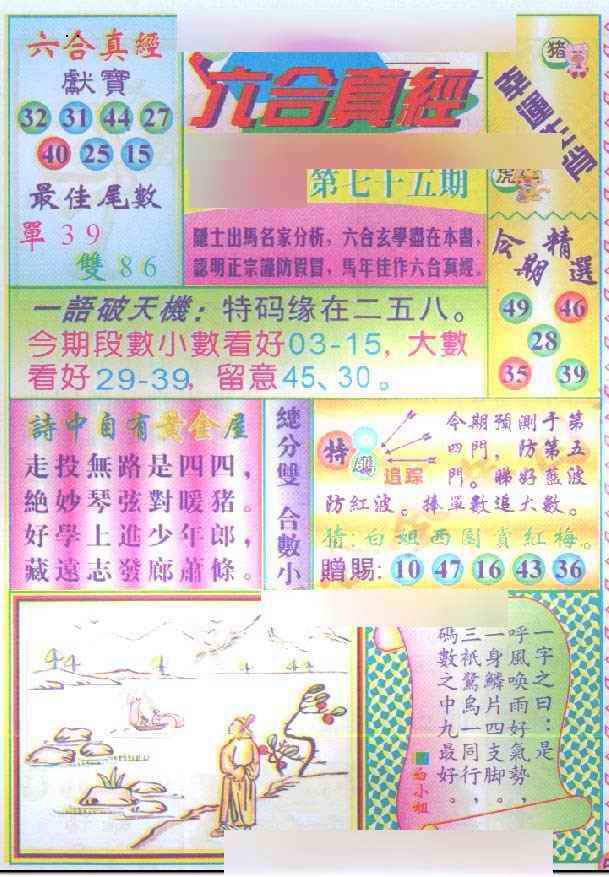 六合真經
獻寶
32 31 44 27
40 25 15
最佳尾數
單 3 9
雙 8 6
六合真經
第七十五期
隱士出馬名家分析，六合玄學盡在本書，
認明正宗謹防假冒，馬年佳作六合真經。
豬
虎
今期
精選
49 46
28
35 39
一語破天機：特码缘在二五八。
今期段數小數看好03-15，大數
看好29-39，留意45、30。
詩中自有黃金屋
走投無路是四四，
絶妙琴弦對暖豬。
好學上進少年郎，
藏遠志發廊蕭條。
總分雙
合數小
特
碼
追踪
今期預測于第
四門，防第五
門。睇好藍波
防紅波。捧單數追大數。
猜：白姐西園賞紅梅。
贈賜: 10 47 16 43 36
一字之曰：是
呼風喚雨好氣勢，
一身鱗片四支脚。
三祇鴛鳥一同行，
碼數之中九最好。